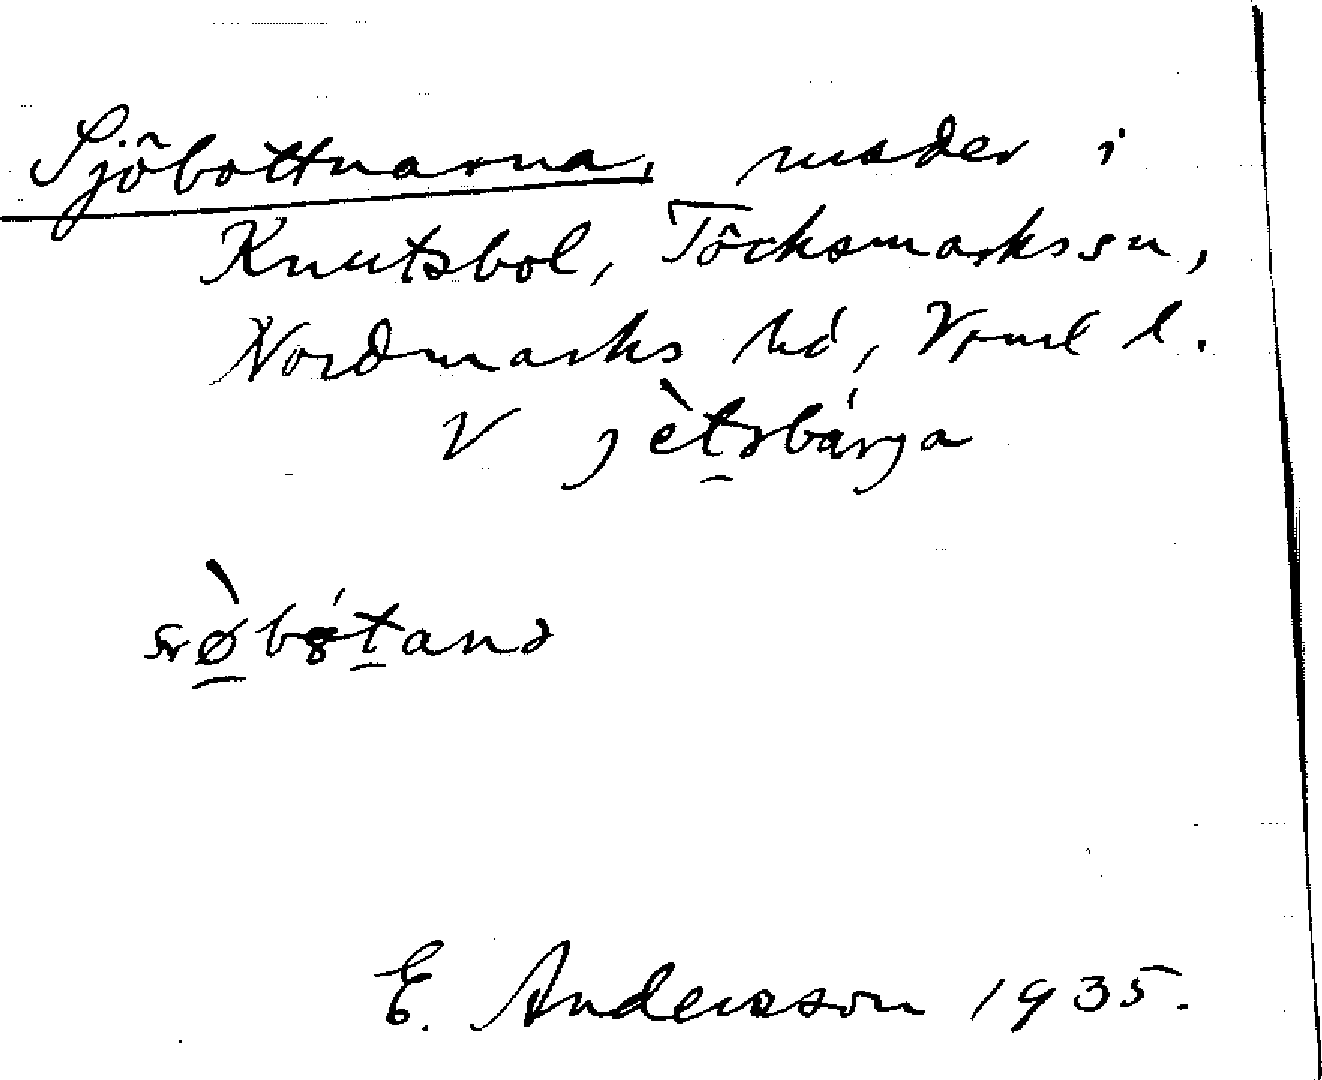 Sjöbottnarna, mader i
Knutsbol, Töcksmarks sn,
Nordmarks hd, Vrml l.
V jètsbárja
bótana
E. Andersson 1935.